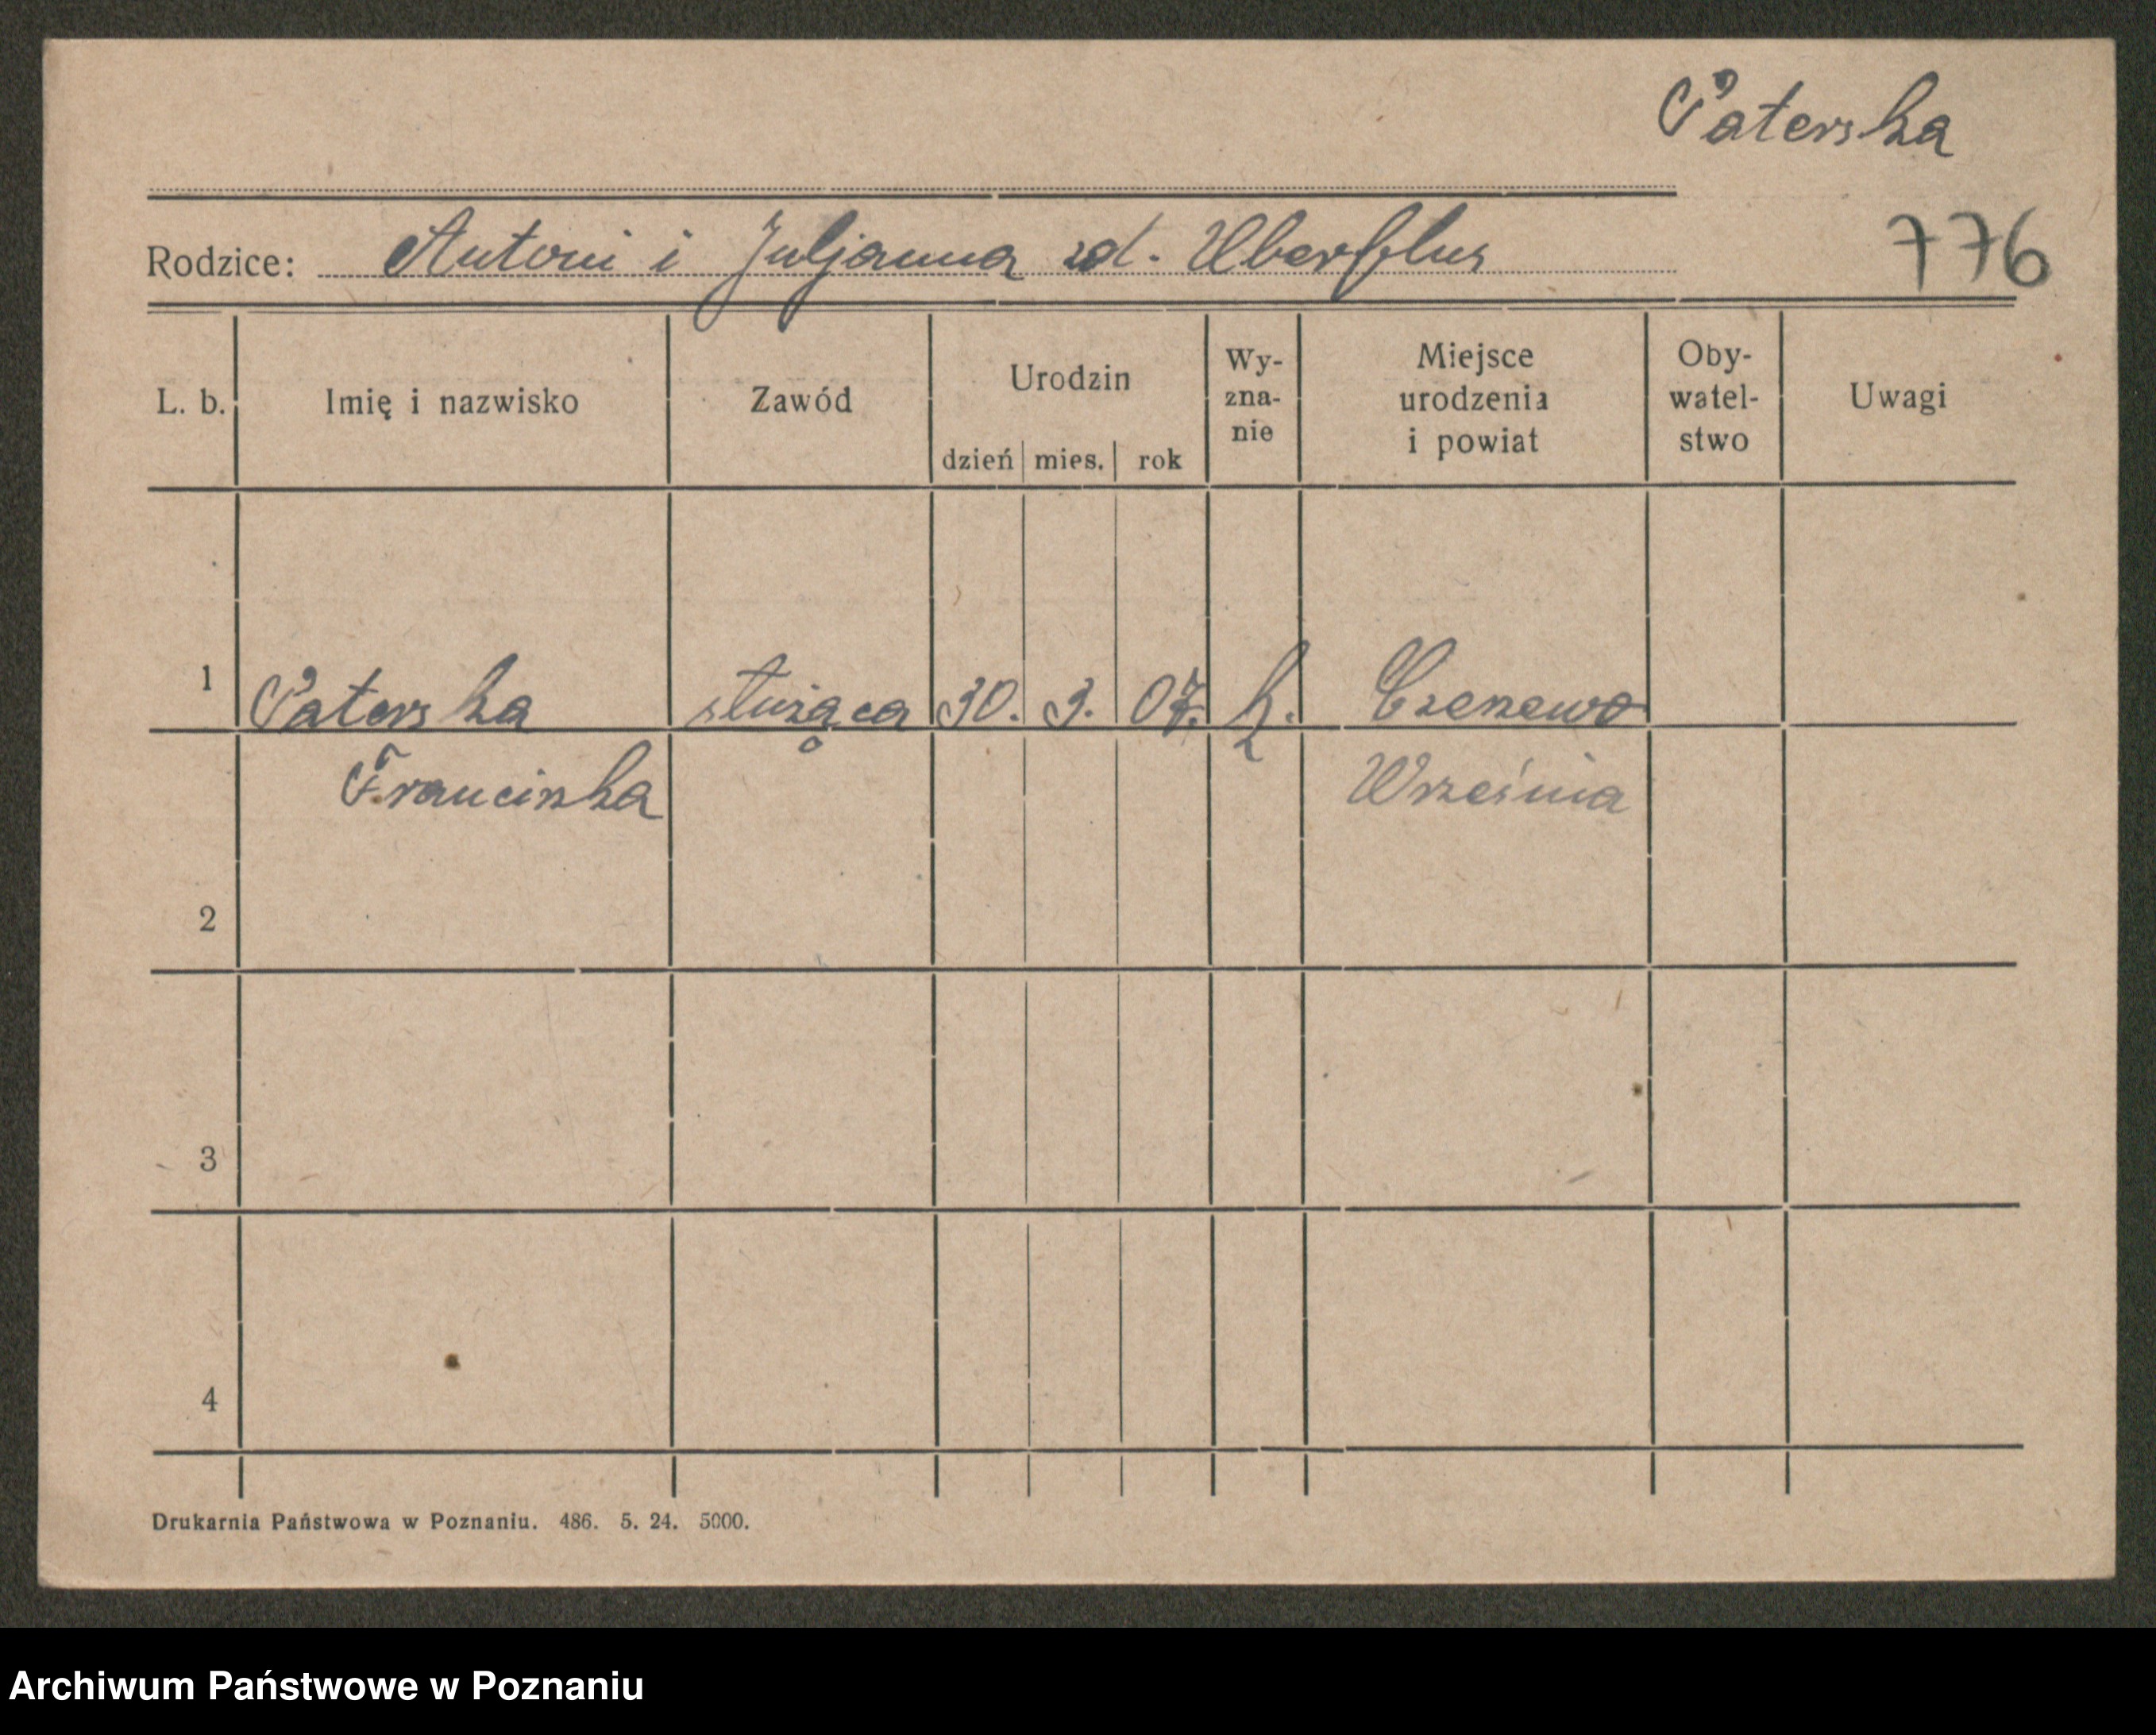 Paterska
Rodzice: Antoni i Juljanna zd. Uberflus
776
L. b. Imię i nazwisko Zawód Urodzin dzień mies. rok Wy- zna- nie Miejsce urodzenia i powiat Oby- watel- stwo Uwagi
1 Paterska służąca 30. 9. 07. k.
Franciszka Września
2
3
4
Drukarnia Państwowa w Poznaniu. 486. 5. 24. 5000.
Archiwum Państwowe w Poznaniu